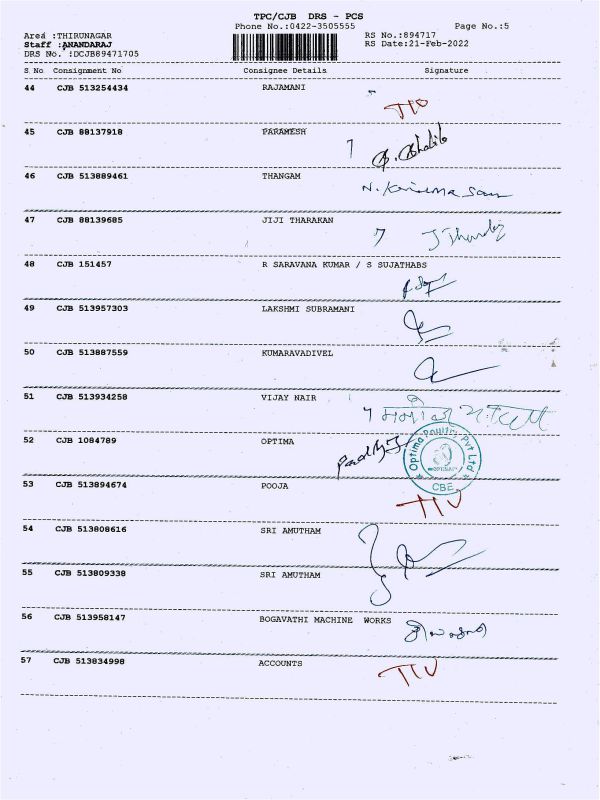 TPC/CJB DRS - PCS
Phone No.:0422-3505555 Page No.:5
Area :THIRUNAGAR RS No.:894717
Staff :ANANDARAJ RS Date:21-Feb-2022
DRS No. :DCJB89471705
S No Consignment No Consignee Details Signature
44 CJB 513254434 RAJAMANI
45 CJB 88137918 PARAMESH
46 CJB 513889461 THANGAM
47 CJB 88139685 JIJI THARAKAN
48 CJB 151457 R SARAVANA KUMAR / S SUJATHABS
49 CJB 513957303 LAKSHMI SUBRAMANI
50 CJB 513887559 KUMARAVADIVEL
51 CJB 513934258 VIJAY NAIR
52 CJB 1084789 OPTIMA
Optima Poultry Pvt Ltd
CBE
53 CJB 513894674 POOJA
54 CJB 513808616 SRI AMUTHAM
55 CJB 513809338 SRI AMUTHAM
56 CJB 513958147 BOGAVATHI MACHINE WORKS
57 CJB 513834998 ACCOUNTS